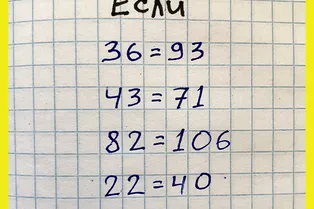 Если
36=93
43=71
82=106
22=40